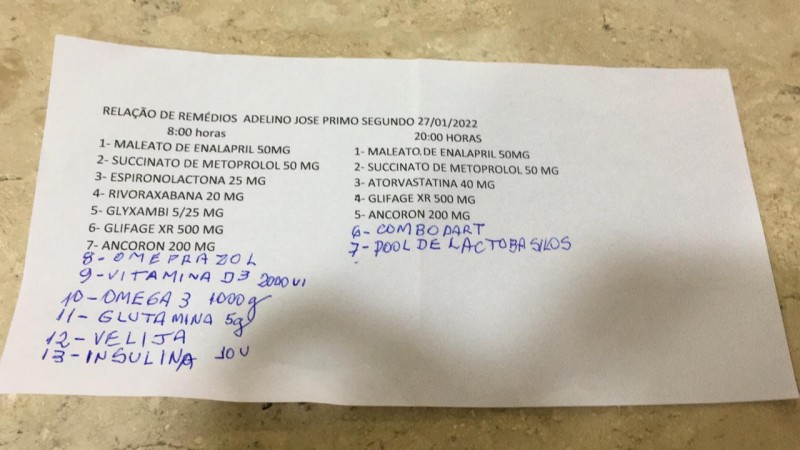 RELAÇÃO DE REMÉDIOS ADELINO JOSE PRIMO SEGUNDO 27/01/2022
8:00 horas
1- MALEATO DE ENALAPRIL 50MG
2- SUCCINATO DE METOPROLOL 50 MG
3- ESPIRONOLACTONA 25 MG
4- RIVORAXABANA 20 MG
5- GLYXAMBI 5/25 MG
6- GLIFAGE XR 500 MG
7- ANCORON 200 MG
8- OMEPRAZOL
9- VITAMINA D3 2000 UI
10- OMEGA 3 1000g
11- GLUTAMINA 5g
12- VELIJA
13- INSULINA 10U
20:00 HORAS
1- MALEATO DE ENALAPRIL 50MG
2- SUCCINATO DE METOPROLOL 50 MG
3- ATORVASTATINA 40 MG
4- GLIFAGE XR 500 MG
5- ANCORON 200 MG
6- COMBODART
7- POOL DE LACTOBASILOS